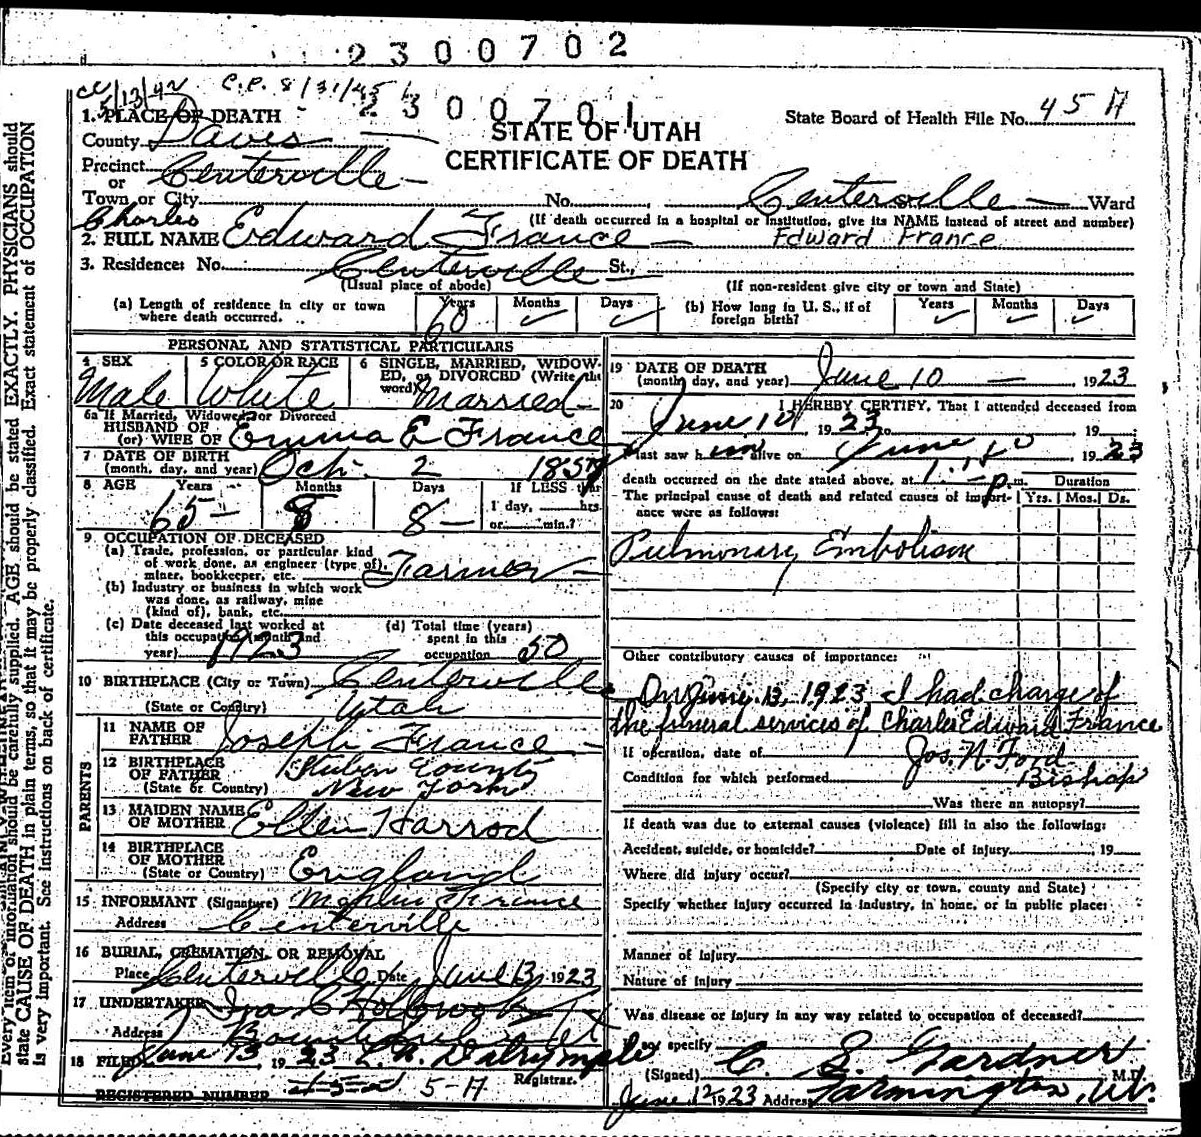 2300702
5/13/42 C.P. 8/31/45
2300701
1. PLACE OF DEATH
State Board of Health File No. 45 A
County Davis
STATE OF UTAH
CERTIFICATE OF DEATH
Precinct Centerville
or
Town or City No. Centerville Ward
(If death occurred in a hospital or institution, give its NAME instead of street and number)
Charles
2. FULL NAME Edward France Edward France
3. Residence: No. Centerville St.,
(Usual place of abode) (If non-resident give city or town and State)
(a) Length of residence in city or town where death occurred. Years 60 Months ✓ Days ✓
(b) How long in U. S., if of foreign birth? Years ✓ Months ✓ Days ✓
PERSONAL AND STATISTICAL PARTICULARS
4 SEX Male
5 COLOR OR RACE White
6 SINGLE, MARRIED, WIDOWED, or DIVORCED (Write the word) Married
6a If Married, Widowed or Divorced
HUSBAND OF
(or) WIFE OF Emma E France
7 DATE OF BIRTH
(month, day, and year) Oct. 2 1857
8 AGE Years 65 Months 8 Days 8
If LESS than
1 day, hrs.
or min.?
9 OCCUPATION OF DECEASED
(a) Trade, profession, or particular kind
of work done, as engineer (type of),
miner, bookkeeper, etc. Farmer
(b) Industry or business in which work
was done, as railway, mine
(kind of), bank, etc.
(c) Date deceased last worked at
this occupation (month and
year) 1923
(d) Total time (years)
spent in this
occupation 50
10 BIRTHPLACE (City or Town) Centerville
(State or Country) Utah
PARENTS
11 NAME OF
FATHER Joseph France
12 BIRTHPLACE
OF FATHER Stuben County
(State or Country) New York
13 MAIDEN NAME
OF MOTHER Ellen Harrod
14 BIRTHPLACE
OF MOTHER
(State or Country) England
15 INFORMANT (Signature) France
Address Centerville
16 BURIAL, CREMATION, OR REMOVAL
Place Centerville Date June 13, 1923
17 UNDERTAKER Ira C Holbrook
Address Bountiful Ut
18 FILED June 13 1923 Dalrymple
Registrar.
REGISTERED NUMBER 5-A
19 DATE OF DEATH
(month, day, and year) June 10 1923
20 I HEREBY CERTIFY, That I attended deceased from
June 10 1923 to 19
I last saw him alive on June 10 1923
death occurred on the date stated above, at 1 P m.
Duration
The principal cause of death and related causes of importance were as follows:
Yrs. Mos. Ds.
Pulmonary Embolism
Other contributory causes of importance:
On June 13, 1923 I had charge of
the funeral services of Charles Edward France
If operation, date of Jos. N. Ford
Condition for which performed Bishop
Was there an autopsy?
If death was due to external causes (violence) fill in also the following:
Accident, suicide, or homicide? Date of injury 19
Where did injury occur?
(Specify city or town, county and State)
Specify whether injury occurred in industry, in home, or in public place:
Manner of injury
Nature of injury
Was disease or injury in any way related to occupation of deceased?
If so, specify
(Signed) C. S. Gardner M.D.
June 12 1923 Address Farmington, Ut.
Every item of information should be carefully supplied. AGE should be stated EXACTLY. PHYSICIANS should
state CAUSE OF DEATH in plain terms, so that it may be properly classified. Exact statement of OCCUPATION
is very important. See instructions on back of certificate.